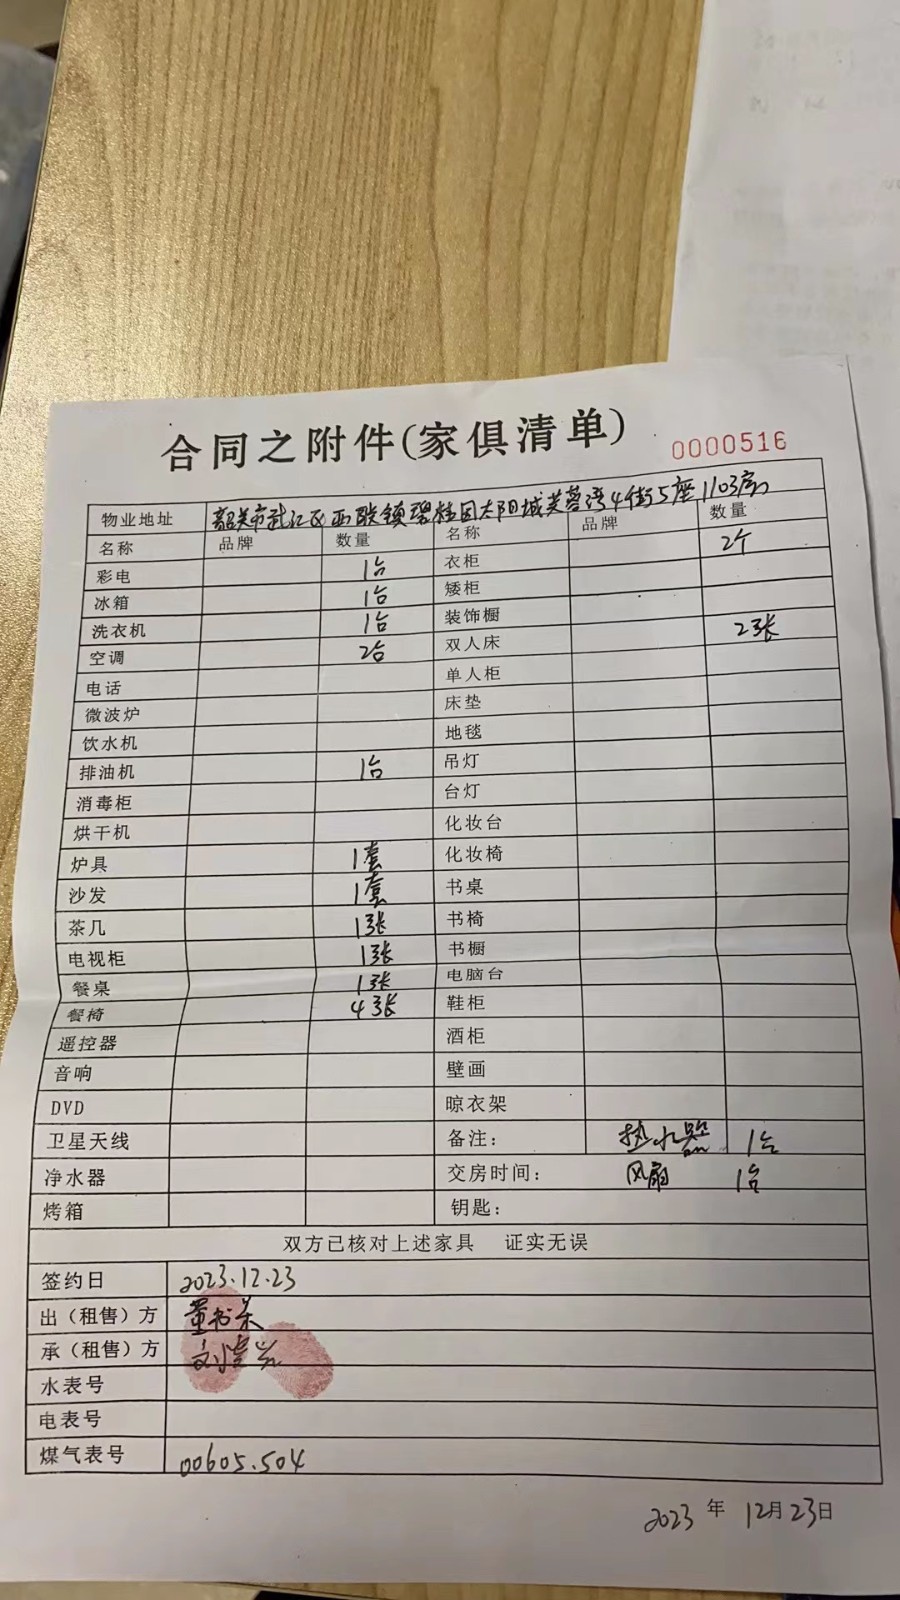 合同之附件(家俱清单)
0000516
物业地址 韶关市武江区西联镇碧桂园太阳城芙蓉湾4街5座1103房
名称 品牌 数量 名称 品牌 数量
彩电 1台 衣柜 2个
冰箱 1台 矮柜
洗衣机 1台 装饰橱
空调 2台 双人床 2张
电话 单人柜
微波炉 床垫
饮水机 地毯
排油机 1台 吊灯
消毒柜 台灯
烘干机 化妆台
炉具 1套 化妆椅
沙发 1套 书桌
茶几 1张 书椅
电视柜 1张 书橱
餐桌 1张 电脑台
餐椅 4张 鞋柜
遥控器 酒柜
音响 壁画
DVD 晾衣架
卫星天线 备注： 热水器 1台
净水器 交房时间： 风扇 1台
烤箱 钥匙：
双方已核对上述家具 证实无误
签约日 2023.12.23
出（租售）方 董书
承（租售）方
水表号
电表号
煤气表号 00605.504
2023 年 12月23日